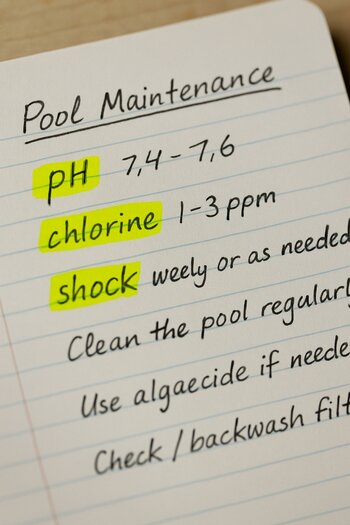 Pool Maintenance
pH 7,4-7,6
chlorine 1-3 ppm
shock weely or as needed
Clean the pool regularly
Use algaecide if neede
Check/backwash filt